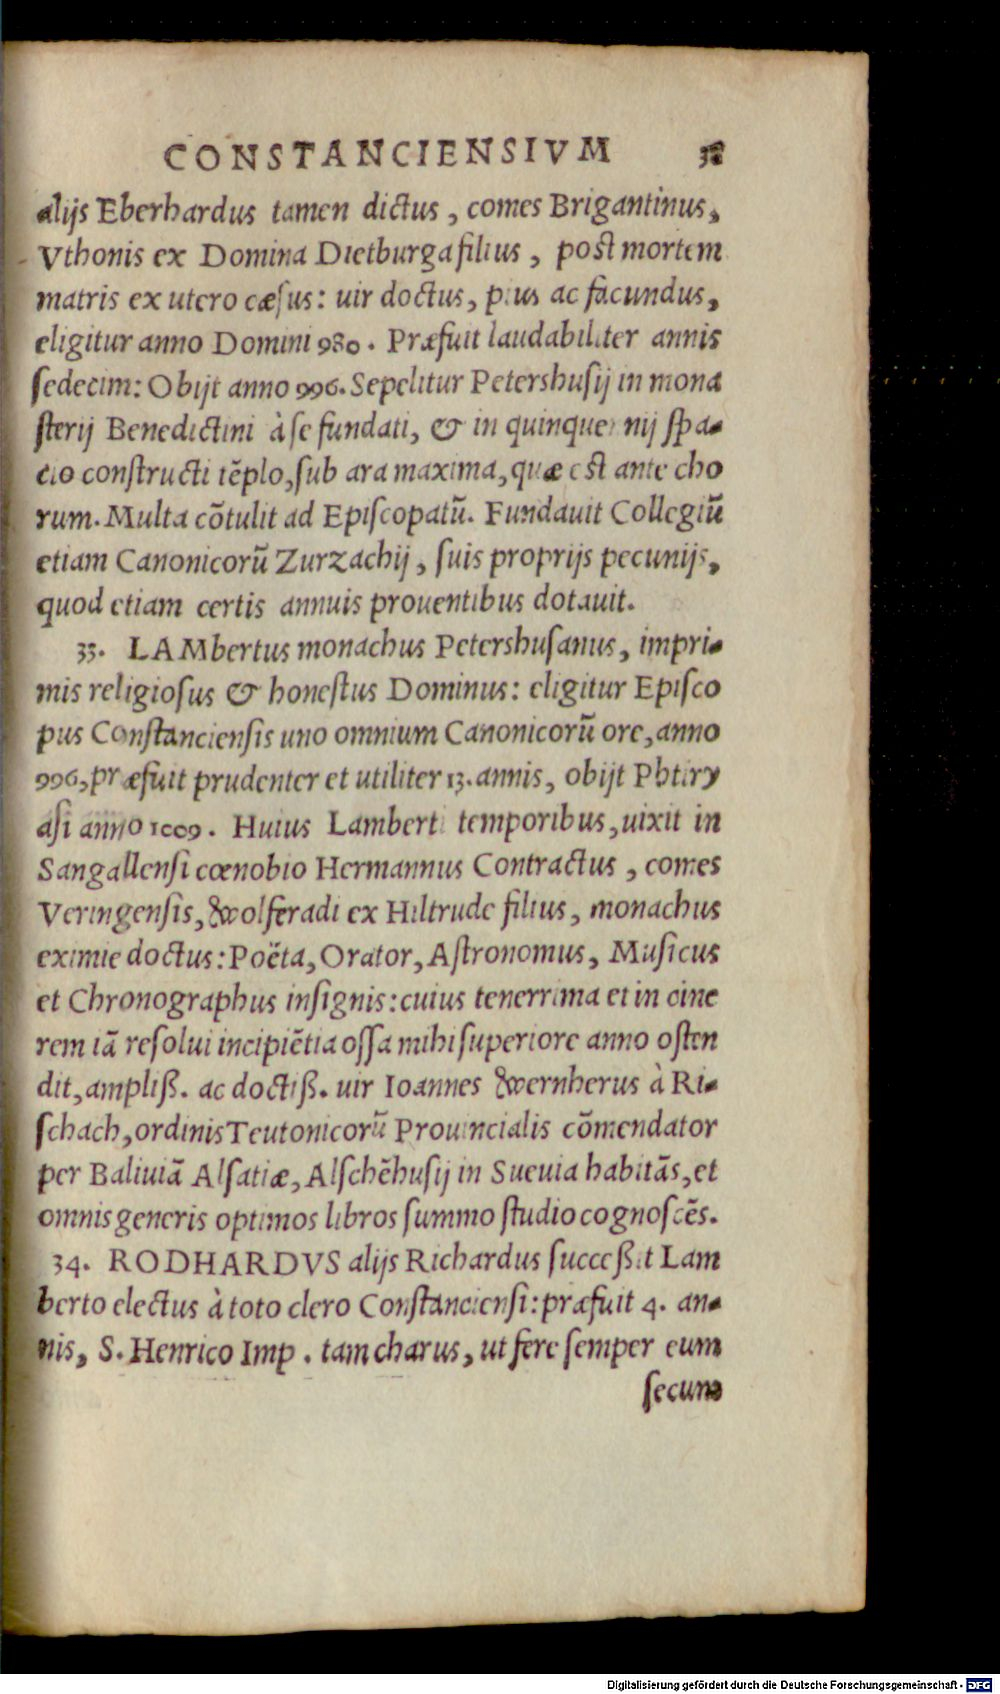 CONSTANCIENSIVM
alijs Eberhardus tamen dictus, comes Brigantinus,
Vthonis ex Domina Dietburga filius, post mortem
matris ex utero cæsus: uir doctus, pius ac facundus,
eligitur anno Domini 980. Præfuit laudabiliter annis
sedecim: Obijt anno 996. Sepelitur Petershusij in mona
sterij Benedictini à se fundati, & in quinquennij spa-
cio constructi tẽplo, sub ara maxima, quæ est ante cho
rum. Multa cõtulit ad Episcopatũ. Fundauit Collegiũ
etiam Canonicorũ Zurzachij, suis proprijs pecunijs,
quod etiam certis annuis prouentibus dotauit.
33. LAMbertus monachus Petershusanus, impri-
mis religiosus & honestus Dominus: eligitur Episco
pus Constanciensis uno omnium Canonicorũ ore, anno
996, præfuit prudenter et utiliter 13. annis, obijt Phtiry
asi anno 1009. Huius Lamberti temporibus, uixit in
Sangallensi cœnobio Hermannus Contractus, comes
Veringensis, Wolferadi ex Hiltrude filius, monachus
eximie doctus: Poëta, Orator, Astronomus, Musicus
et Chronographus insignis: cuius tenerrima et in cine
rem iã resolui incipiẽtia ossa mihi superiore anno osten
dit, ampliß. ac doctiß. uir Ioannes Wernherus à Ri-
schach, ordinis Teutonicorũ Prouincialis cõmendator
per Baliuiã Alsatiæ, Alschẽhusij in Sueuia habitãs, et
omnis generis optimos libros summo studio cognoscẽs.
34. RODHARDVS alijs Richardus succeßit Lam
berto electus à toto clero Constanciensi: præfuit 4. an-
nis, S. Henrico Imp. tam charus, ut fere semper eum
secum
Digitalisierung gefördert durch die Deutsche Forschungsgemeinschaft - DFG